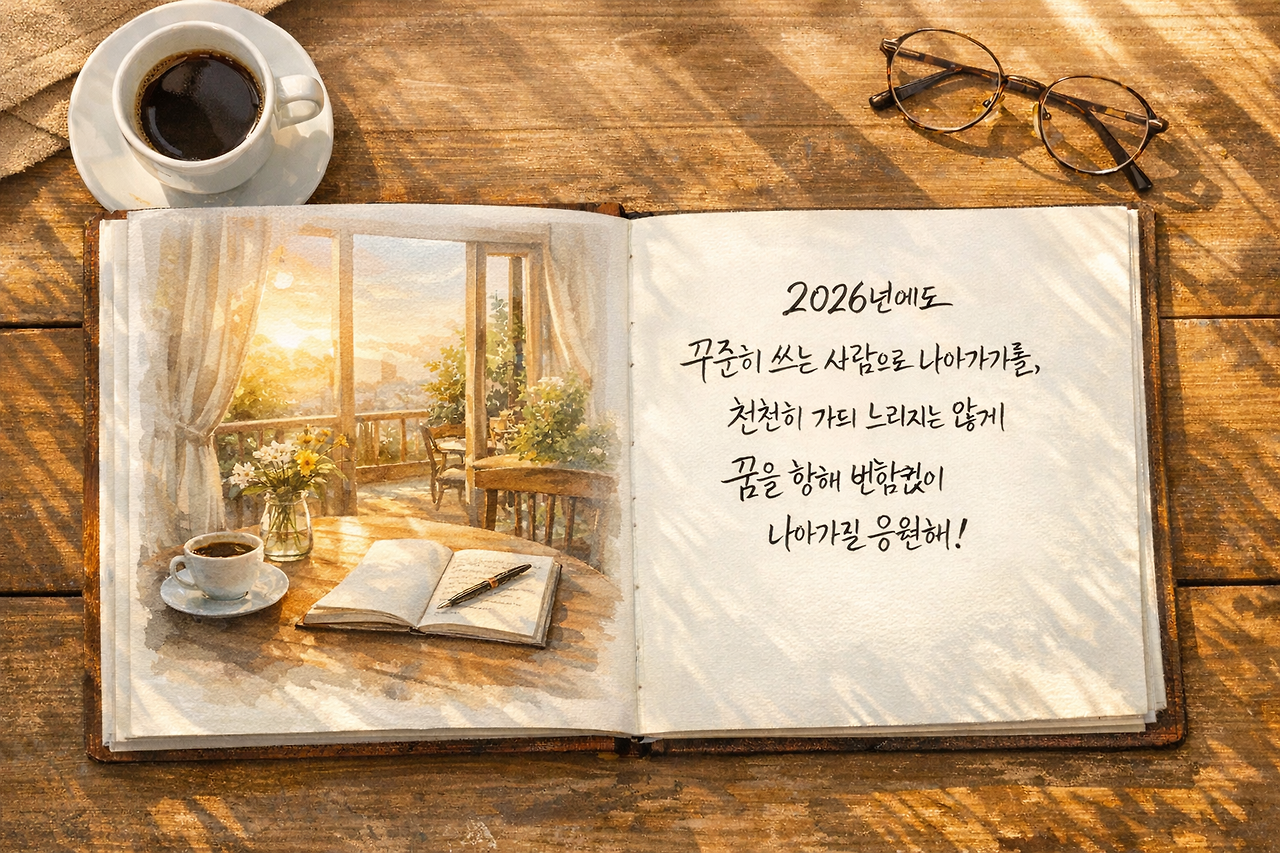 2026년에도
꾸준히 쓰는 사람으로 나아가기를,
천천히 가되 느리지는 않게
꿈을 항해
나아가길 응원해!